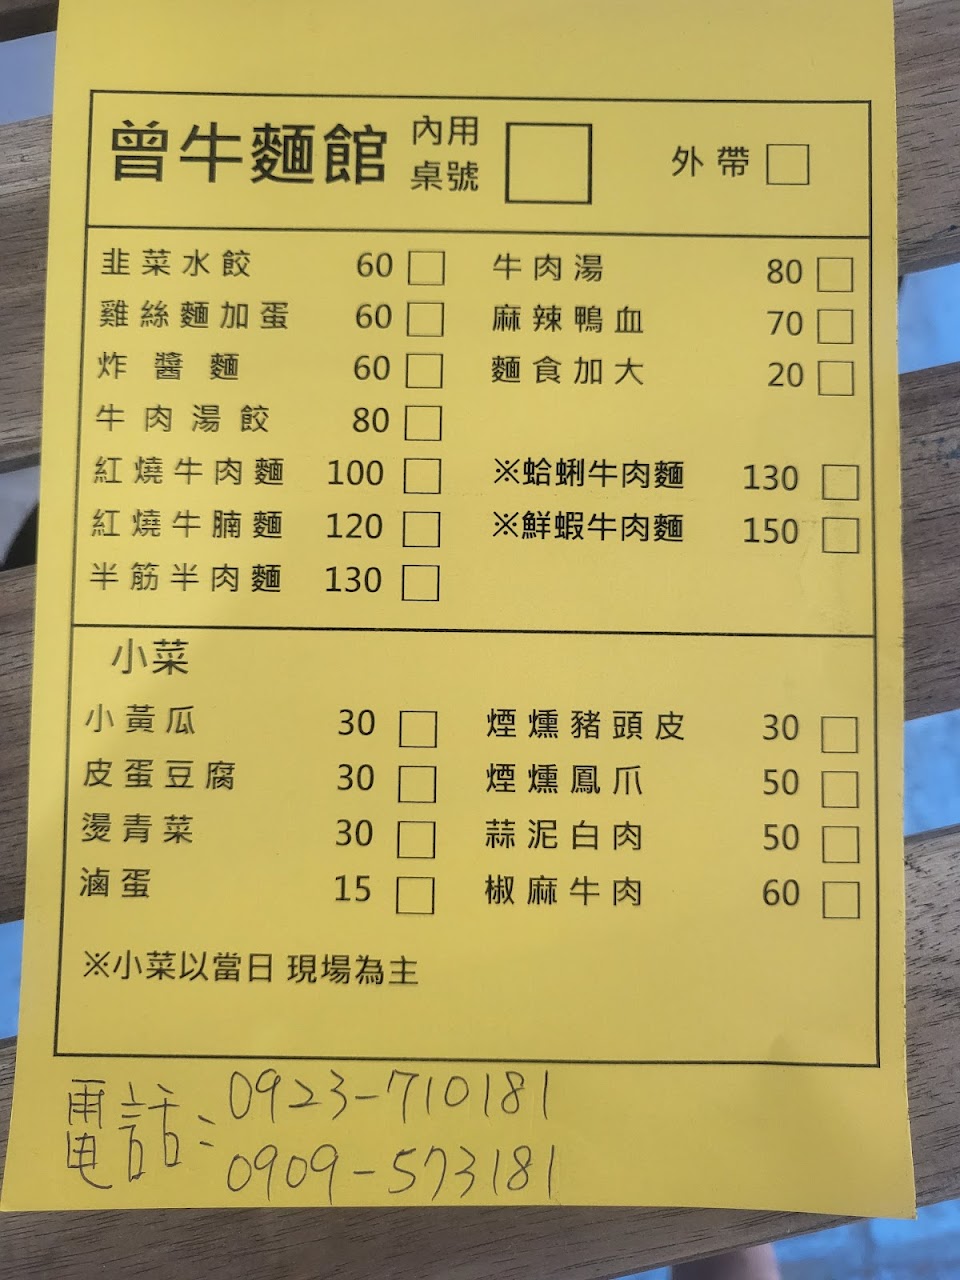 曾牛麵館 內用桌號 □ 外帶 □
韭菜水餃 60 □ 牛肉湯 80 □
雞絲麵加蛋 60 □ 麻辣鴨血 70 □
炸醬麵 60 □ 麵食加大 20 □
牛肉湯餃 80 □
紅燒牛肉麵 100 □ ※蛤蜊牛肉麵 130 □
紅燒牛腩麵 120 □ ※鮮蝦牛肉麵 150 □
半筋半肉麵 130 □
小菜
小黃瓜 30 □ 煙燻豬頭皮 30 □
皮蛋豆腐 30 □ 煙燻鳳爪 50 □
燙青菜 30 □ 蒜泥白肉 50 □
滷蛋 15 □ 椒麻牛肉 60 □
※小菜以當日 現場為主
電話:0923-710181
0909-573181